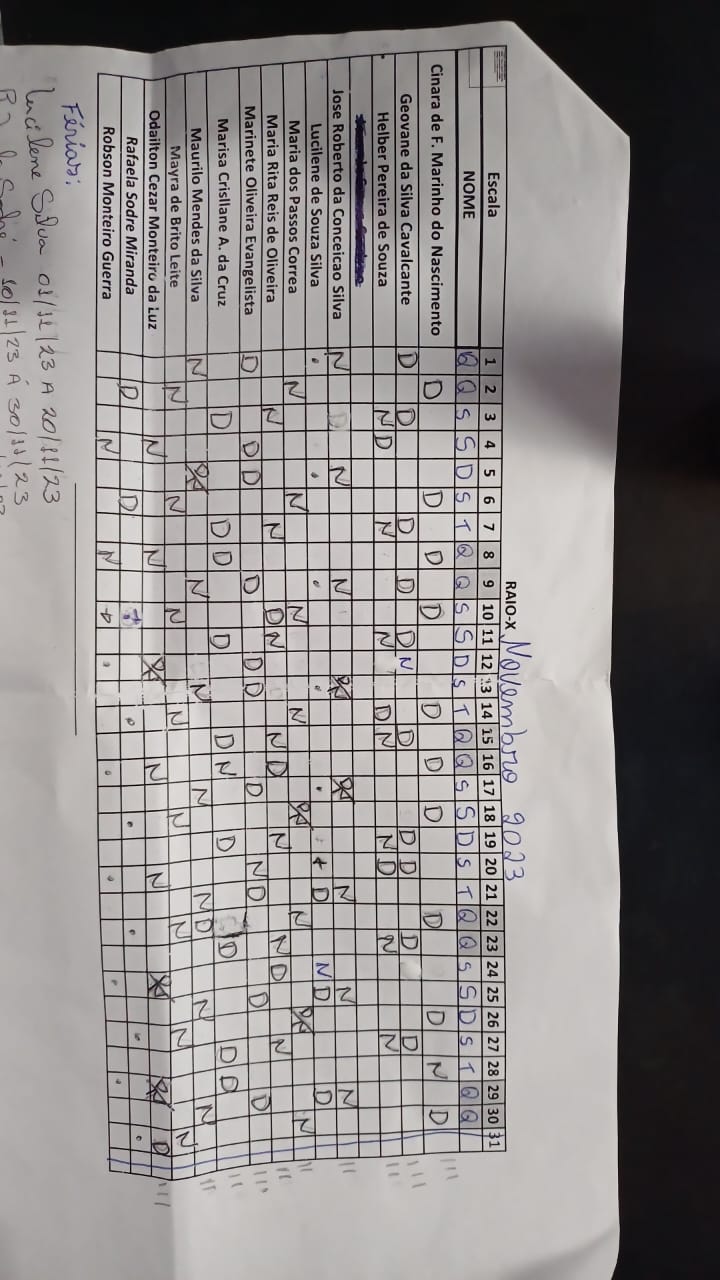 RAIO-X Novembro 2023
Escala 1 2 3 4 5 6 7 8 9 10 11 12 13 14 15 16 17 18 19 20 21 22 23 24 25 26 27 28 29 30 31
NOME Q Q S S D S T Q Q S S D S T Q Q S S D S T Q Q S S D S T Q Q
Cinara de F. Marinho do Nascimento D D D D D D D D D N D
Geovane da Silva Cavalcante D D D D D N D D D D D
Helber Pereira de Souza N D N N D N N D N N
Jose Roberto da Conceicao Silva N D N N N N N
Lucilene de Souza Silva D N D D
Maria dos Passos Correa N N N N N N
Maria Rita Reis de Oliveira N N D N N D N N D N
Marinete Oliveira Evangelista D D D D D D D N D D D
Marisa Crisllane A. da Cruz D D D D D N D D D D
Maurilo Mendes da Silva N N N N N D N N
Mayra de Brito Leite N N N N N N N N
Odailton Cezar Monteiro da Luz N N N N D
Rafaela Sodre Miranda D D
Robson Monteiro Guerra N N
Férias:
Lucilene Silva 01/11/23 A 20/11/23
10/11/23 Á 30/11/23